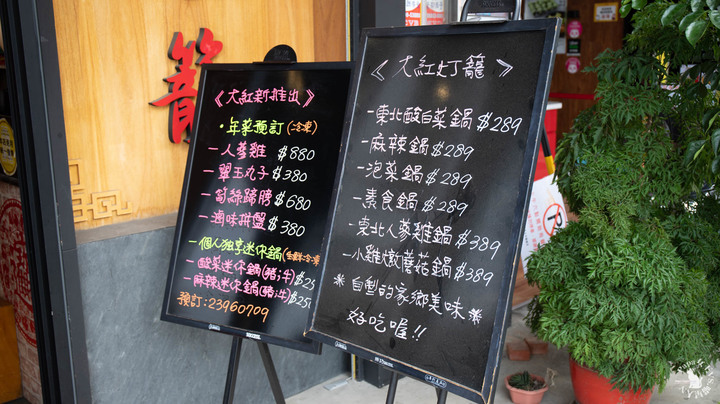 籠
《大紅新推出》
•年菜預訂(冷凍)
－人蔘雞 $880
－翠玉丸子 $380
－筍絲蹄膀 $680
－滷味拼盤 $380
－個人独享迷你鍋(生鮮;冷凍
－酸菜迷你鍋(豬;牛)$25
－麻辣迷你鍋(豬;牛)$25
預訂:23960709
《大紅灯籠》
－東北酸白菜鍋$289
－麻辣鍋$289
－泡菜鍋$289
－素食鍋$289
－東北人蔘雞鍋$389
－小雞燉蘑菇鍋$389
※自型的家鄉美味※
好吃喔!!